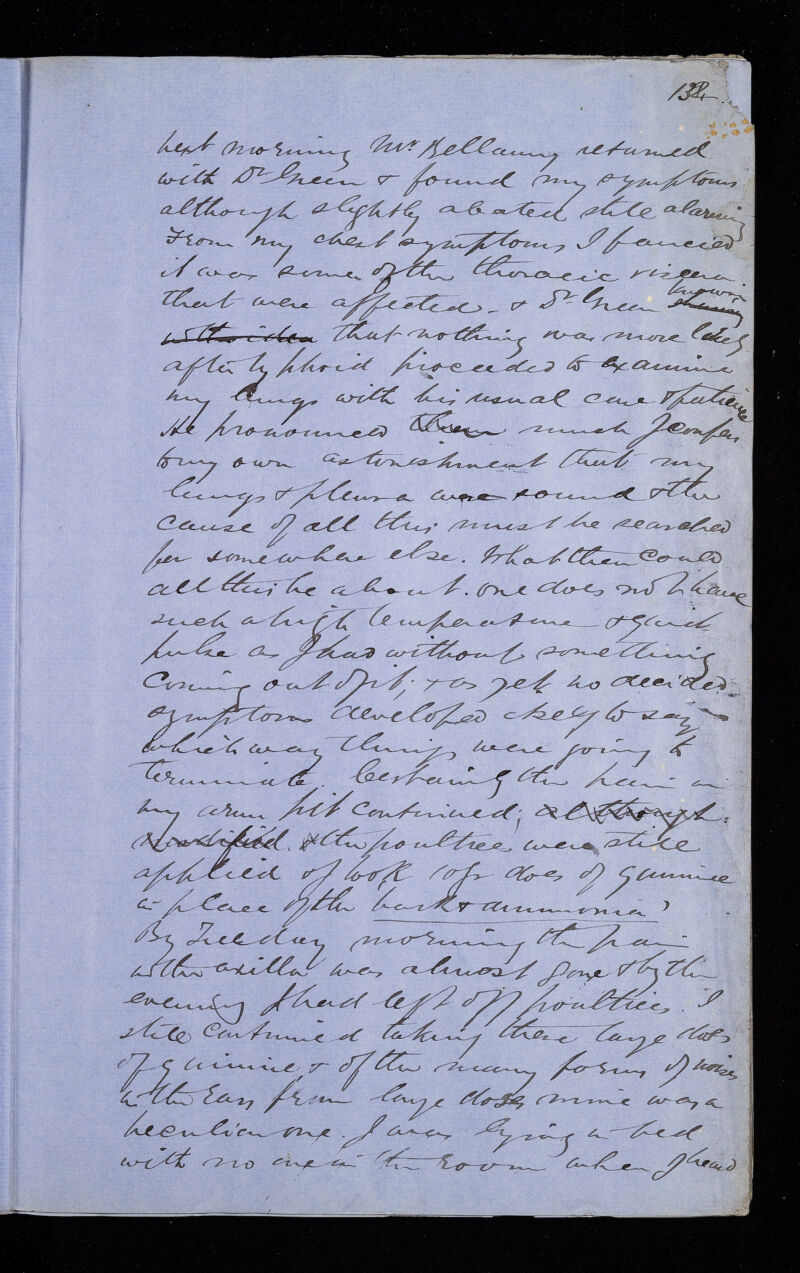 134
next morning Mr. Bellamy returned
with Dr Green & found my symptoms
although slightly abated still alarming
From my chest symptoms I fancied
it was some of the thoracic viscera
that were affected. & Dr. Green knowing
with idea that nothing was more likely
after typhoid proceeded to examine
my lungs with his usual care & patience
He pronounced them much I confess
to my own astonishment that my
lungs & pleura were sound & the
cause of all this must be searched
for somewhere else. What then could
all this be about. one does not have
such a high temperature & quick
pulse as I had without something
coming out of it; & as yet no decided
symptoms developed to say
which way things were going to
terminate. Certainly the pain in
my arm pit continued; although
modified. & the poultices were still
applied & I took 10gr does of quinine
in place of the bark & ammonia
By Tuesday morning the pain
in the axilla was almost gone & by the
evening I had left off poultices. I
still continued taking these large does
of quinine & of the many forms of noises
in the ears from large doses mine was a
peculiar one. I was lying in bed
with no one in the room when I heard